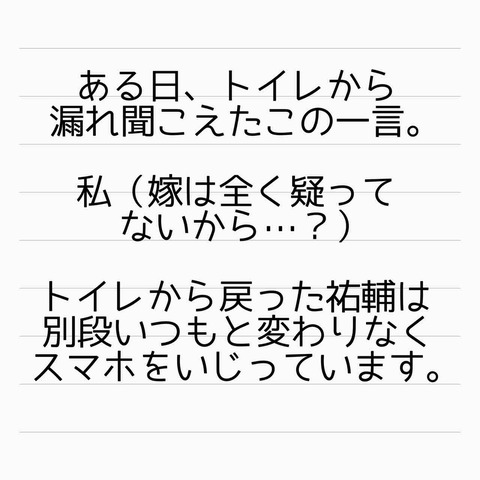 ある日、トイレから
漏れ聞こえたこの一言。
私（嫁は全く疑って
ないから…？）
トイレから戻った祐輔は
別段いつもと変わりなく
スマホをいじっています。